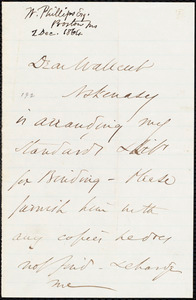 W. Phillips Esq.
Boston Ms
2 Dec. 1864
Dear Wallcut
is arranging my
Standard &
for Binding - Please
furnish him with
any copies he does
not find - & charge
me